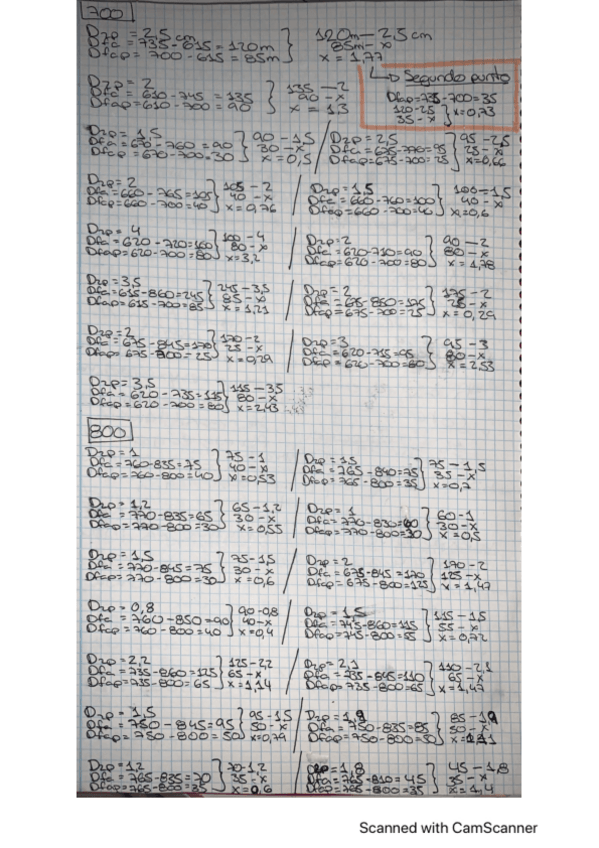 700
Dzp = 2,5 cm
Dfc = 735 - 615 = 120m
Dfcp = 700 - 615 = 85m
120m — 2,5 cm
85m - x
x = 1,77
↳ Segundo punto
Dfcp = 735 - 700 = 35
120 - 2,5
35 - x
x = 0,73
Dzp = 2
Dfc = 610 - 745 = 135
Dfcp = 610 - 700 = 90
135 — 2
90 - x
x = 1,3
Dzp = 1,5
Dfc = 670 - 760 = 90
Dfcp = 670 - 700 = 30
90 - 1,5
30 - x
x = 0,5
Dzp = 2,5
Dfc = 675 - 770 = 95
Dfcp = 675 - 700 = 25
95 - 2,5
25 - x
x = 0,66
Dzp = 2
Dfc = 660 - 765 = 105
Dfcp = 660 - 700 = 40
105 - 2
40 - x
x = 0,76
Dzp = 1,5
Dfc = 660 - 760 = 100
Dfcp = 660 - 700 = 40
100 - 1,5
40 - x
x = 0,6
Dzp = 4
Dfc = 620 - 720 = 100
Dfcp = 620 - 700 = 80
100 - 4
80 - x
x = 3,2
Dzp = 2
Dfc = 620 - 710 = 90
Dfcp = 620 - 700 = 80
90 — 2
80 - x
x = 1,78
Dzp = 3,5
Dfc = 615 - 860 = 245
Dfcp = 615 - 700 = 85
245 - 3,5
85 - x
x = 1,21
Dzp = 2
Dfc = 675 - 850 = 175
Dfcp = 675 - 700 = 25
175 - 2
25 - x
x = 0,29
Dzp = 2
Dfc = 675 - 845 = 170
Dfcp = 675 - 800 = 25
170 - 2
25 - x
x = 0,29
Dzp = 3
Dfc = 620 - 715 = 95
Dfcp = 620 - 700 = 80
95 - 3
80 - x
x = 2,53
Dzp = 3,5
Dfc = 620 - 735 = 115
Dfcp = 620 - 700 = 80
115 — 3,5
80 - x
x = 2,43
800
Dzp = 1
Dfc = 760 - 835 = 75
Dfcp = 760 - 800 = 40
75 - 1
40 - x
x = 0,53
Dzp = 1,5
Dfc = 765 - 840 = 75
Dfcp = 765 - 800 = 35
75 — 1,5
35 - x
x = 0,7
Dzp = 1,2
Dfc = 770 - 835 = 65
Dfcp = 770 - 800 = 30
65 - 1,2
30 - x
x = 0,55
Dzp = 1
Dfc = 770 - 830 = 60
Dfcp = 770 - 800 = 30
60 - 1
30 - x
x = 0,5
Dzp = 1,5
Dfc = 770 - 845 = 75
Dfcp = 770 - 800 = 30
75 - 1,5
30 - x
x = 0,6
Dzp = 2
Dfc = 675 - 845 = 170
Dfcp = 675 - 800 = 125
170 - 2
125 - x
x = 1,47
Dzp = 0,8
Dfc = 760 - 850 = 90
Dfcp = 760 - 800 = 40
90 - 0,8
40 - x
x = 0,4
Dzp = 1,5
Dfc = 745 - 860 = 115
Dfcp = 745 - 800 = 55
115 - 1,5
55 - x
x = 0,72
Dzp = 2,2
Dfc = 735 - 860 = 125
Dfcp = 735 - 800 = 65
125 - 2,2
65 - x
x = 1,14
Dzp = 2,1
Dfc = 735 - 845 = 110
Dfcp = 735 - 800 = 65
110 - 2,1
65 - x
x = 1,47
Dzp = 1,5
Dfc = 750 - 845 = 95
Dfcp = 750 - 800 = 50
95 - 1,5
50 - x
x = 0,79
Dzp = 1,9
Dfc = 750 - 835 = 85
Dfcp = 750 - 800 = 50
85 - 1,9
50 - x
Dzp = 1,2
Dfc = 765 - 835 = 70
Dfcp = 765 - 800 = 35
70 - 1,2
35 - x
x = 0,6
Dzp = 1,8
Dfc = 765 - 810 = 45
Dfcp = 765 - 800 = 35
45 - 1,8
35 - x
x = 1,4
Scanned with CamScanner